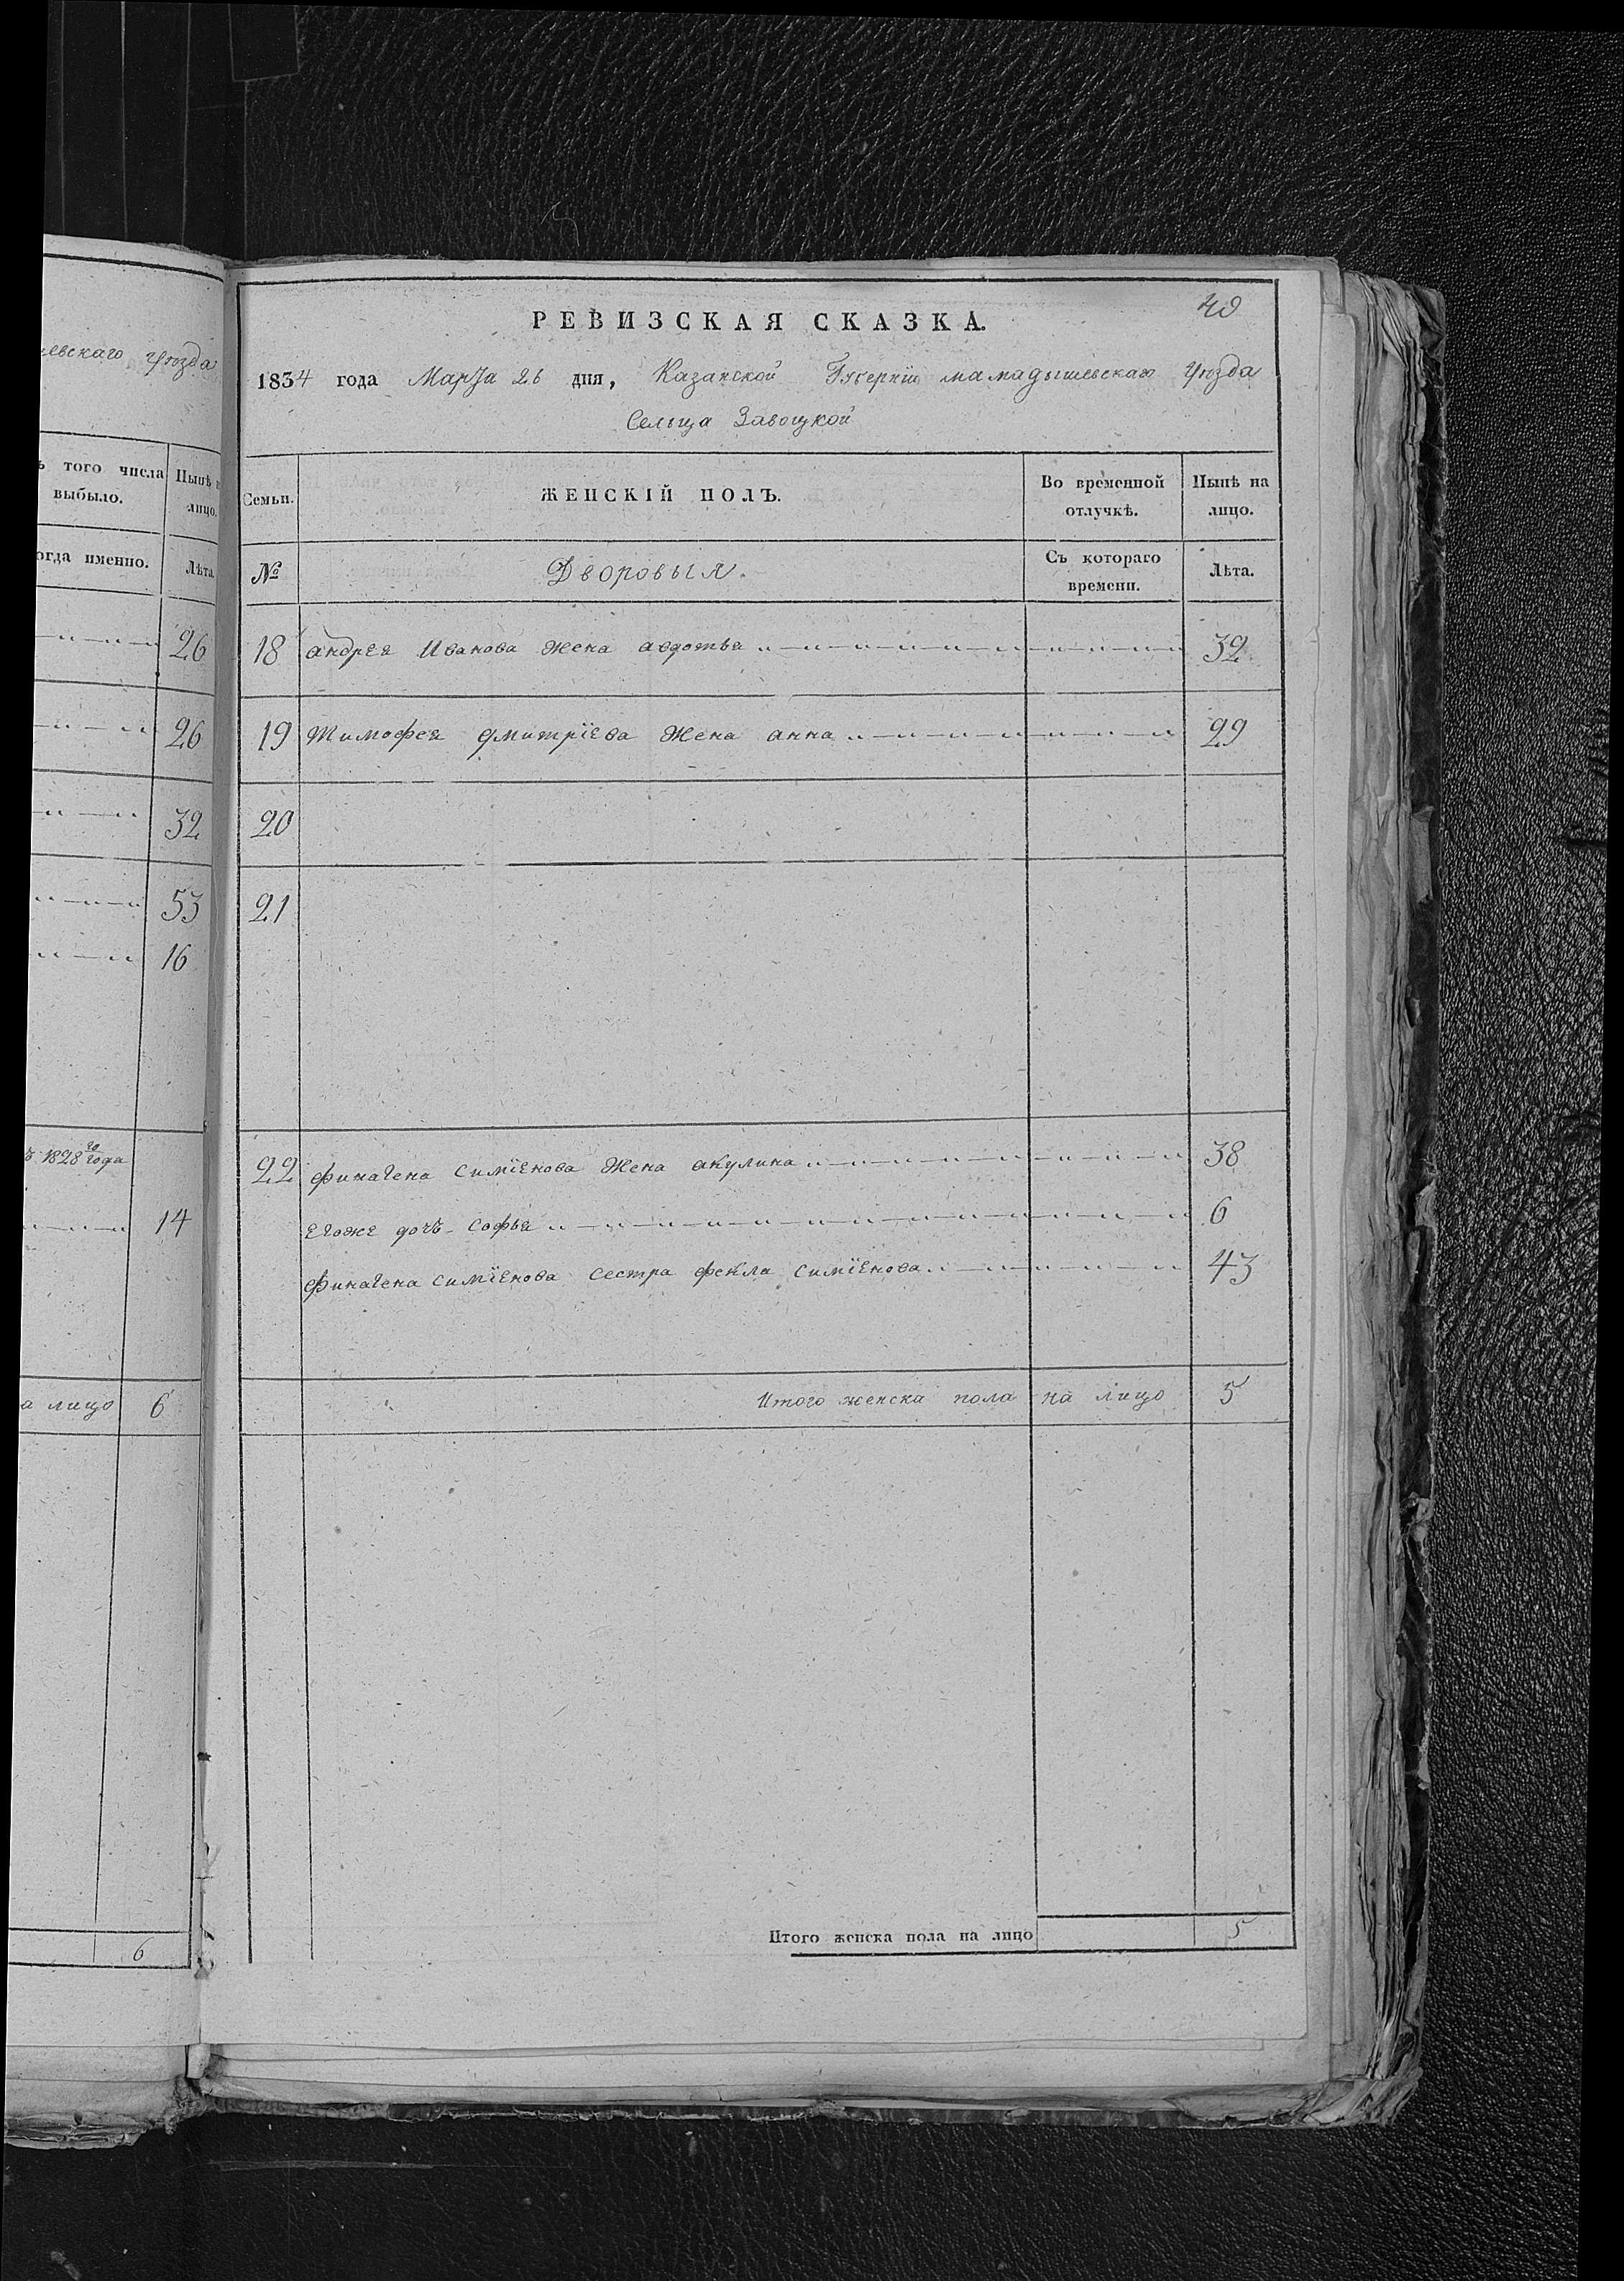 евскаго уѣзда
ъ того числа выбыло.
Нынѣ
лицо.
огда именно.
Лѣта
26
26
32
53
16
1828го года
14
а лицо 6
6
40
РЕВИЗСКАЯ СКАЗКА.
1834 года Марта 26 дня, Казанской Губерніи мамадышевскаго уѣзда
Сельца Завоцкой
Семьи.
ЖЕНСКІЙ ПОЛЪ.
Во временной отлучкѣ.
Нынѣ на лицо.
№
Дворовыя.
Съ котораго времени.
Лѣта.
18 андрея Иванова жена авдотья 32
19 тимофея дмитрїева жена анна 29
20
21
22 финагена симїенова жена акулина 38
егоже дочь софья 6
финагена симїенова сестра фекла симїенова 43
Итого женска пола на лицо 5
Итого женска пола на лицо 5